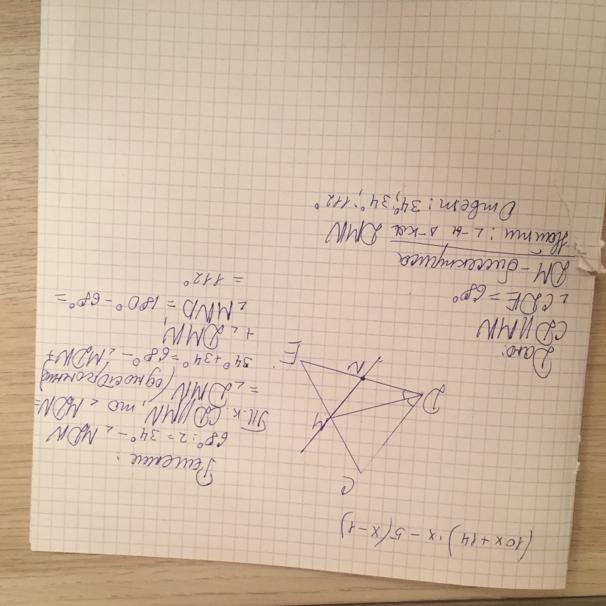 (10x+14)·x-5(x-1)
C
M
D
N
E
Дано:
CD||MN
∠CDE=68°
DM-биссектриса
Найти: ∠-и ∆-ка DMN
Ответ: 34°; 34°; 112°
Решение:
68°:2=34°-∠MDN
Т.к. CD||MN, то ∠MDN=
=∠DMN (односторонние)
34°+34°=68°-∠MDN+
+∠DMN
∠MND=180°-68°=
=112°